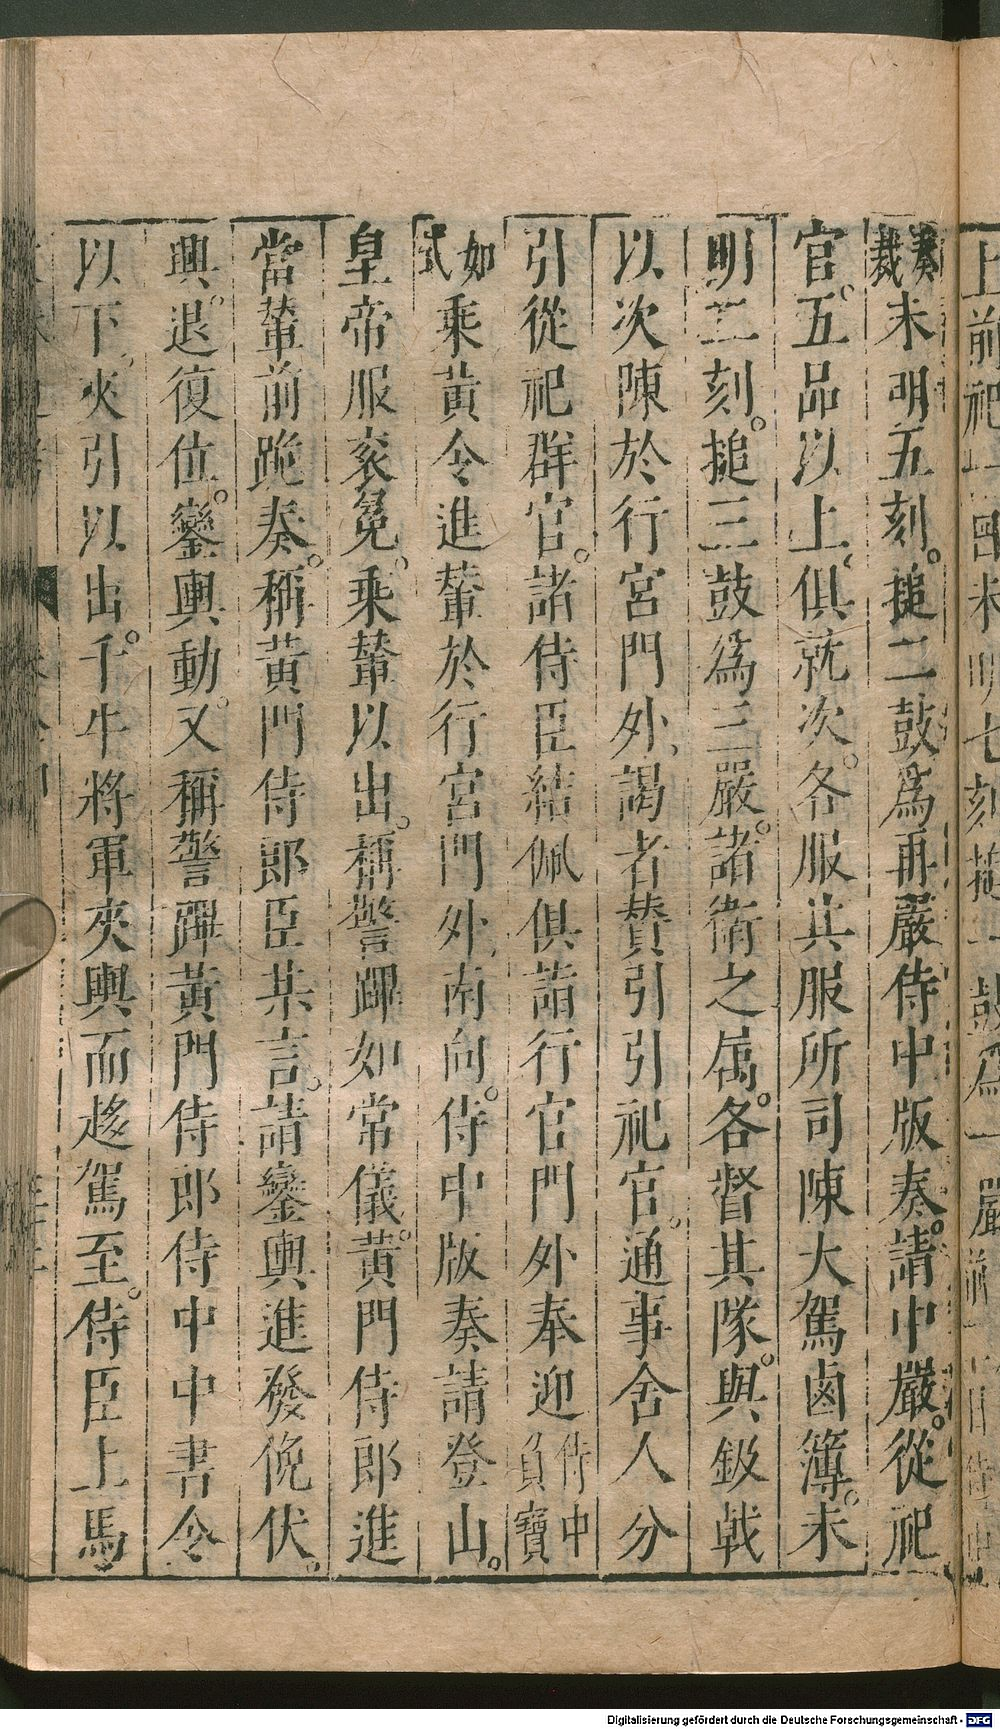 上前祀一日未明七刻搥一鼓爲一嚴前一日侍中
奏裁未明五刻。搥二鼓爲再嚴侍中版奏。請中嚴。從祀
官。五品以上、俱就次。各服其服所司陳大駕鹵簿。未
明二刻。搥三鼓爲三嚴。諸衛之属。各督其隊。與鈒戟
以次陳於行宮門外、謁者贊引引祀官。通事舍人分
引從祀群官。諸侍臣結佩俱詣行官門外奉迎侍中負寶
如式乘黄令進輦於行宮門外、南向。侍中版奏請登山。
皇帝服衮冕。乘輦以出。稱警蹕如常儀。黄門侍郎進
當輦前跪奏。稱黄門侍郎臣某言。請鑾輿進發俛伏。
興。退復位。鑾輿動。又稱警蹕黄門侍郎侍中中書令
以下。夾引以出。千牛將軍夾輿而趍駕至。侍臣上馬
Digitalisierung gefördert durch die Deutsche Forschungsgemeinschaft - DFG